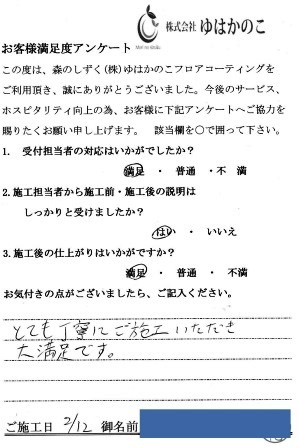 株式会社 ゆはかのこ
お客様満足度アンケート
この度は、森のしずく(株)ゆはかのこフロアコーティングを
ご利用頂き、誠にありがとうございました。今後のサービス、
ホスピタリティ向上の為、お客様に下記アンケートへご協力を
賜りたくお願い申し上げます。 該当欄を〇で囲って下さい。
1. 受付担当者の対応はいかがでしたか?
満足 ・ 普通 ・ 不 満
2.施工担当者から施工前・施工後の説明は
しっかりと受けましたか?
はい ・ いいえ
3.施工後の仕上がりはいかがですか?
満足 ・ 普通 ・ 不満
お気付きの点がございましたら、ご記入ください。
とても丁寧にご施工いただき
大満足です。
ご施工日 2/12 御名前